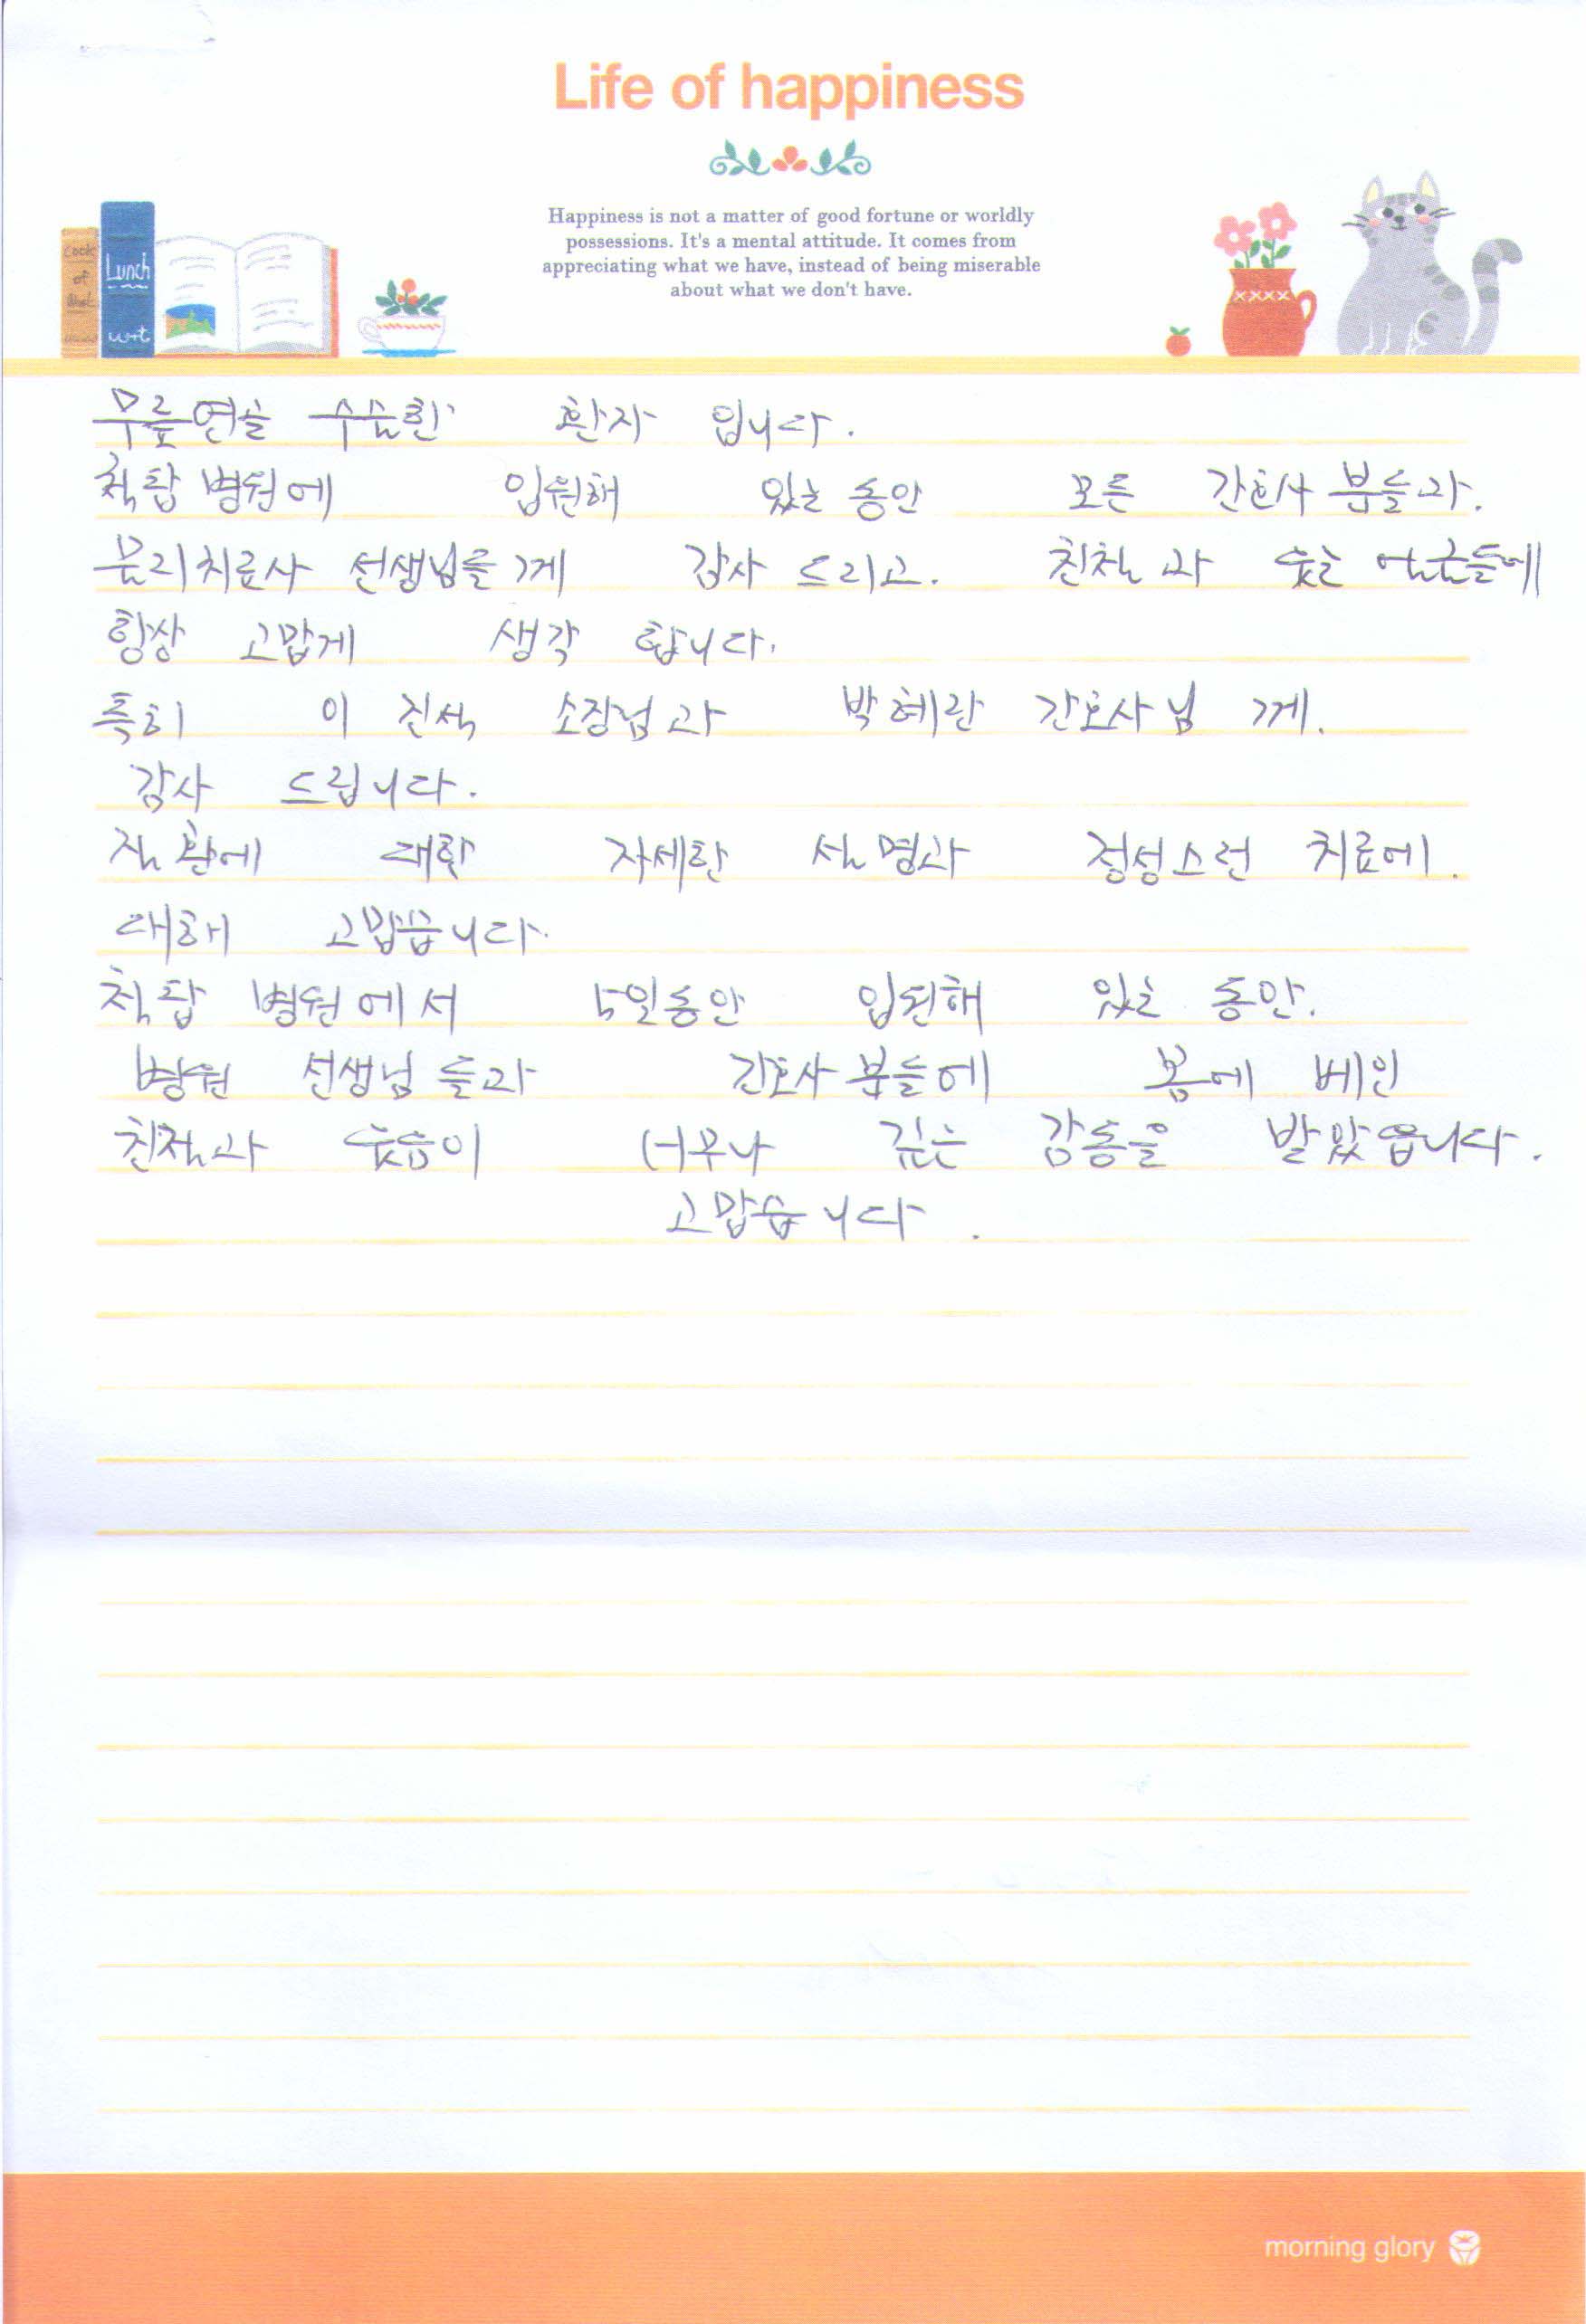 Life of happiness
Happiness is not a matter of good fortune or worldly
possessions. It's a mental attitude. It comes from
appreciating what we have, instead of being miserable
about what we don't have.
Lunch
무릎연술 수술한 환자 입니다.
척탑병원에 입원해 있는 동안 모든 간호사 분들과.
물리치료사 선생님들께 감사 드리고. 친철과 웃는 얼굴들에
항상 고맙게 생각 합니다.
특히 이 진석 소장님과 박혜란 간호사님 께.
감사 드립니다.
질환에 대한 자세한 설명과 정성스런 치료에.
대해 고맙습니다.
척탑 병원에서 5일동안 입원해 있는 동안.
병원 선생님 들과 간호사 분들에 몸에 베인
친절과 웃음이 너무나 깊은 감동을 받았습니다.
고맙습니다.
morning glory